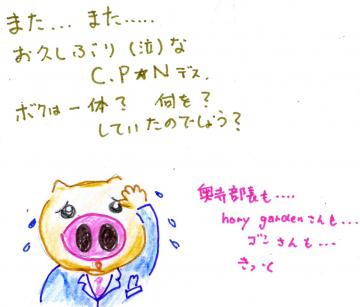 また... また.....
お久しぶり(泣)な
C.P★Nデス.
ボクは一体? 何を?
していたのでしょう?
奥寺部長も....
hony gardenさんも...
ゴンさんも...
きっと